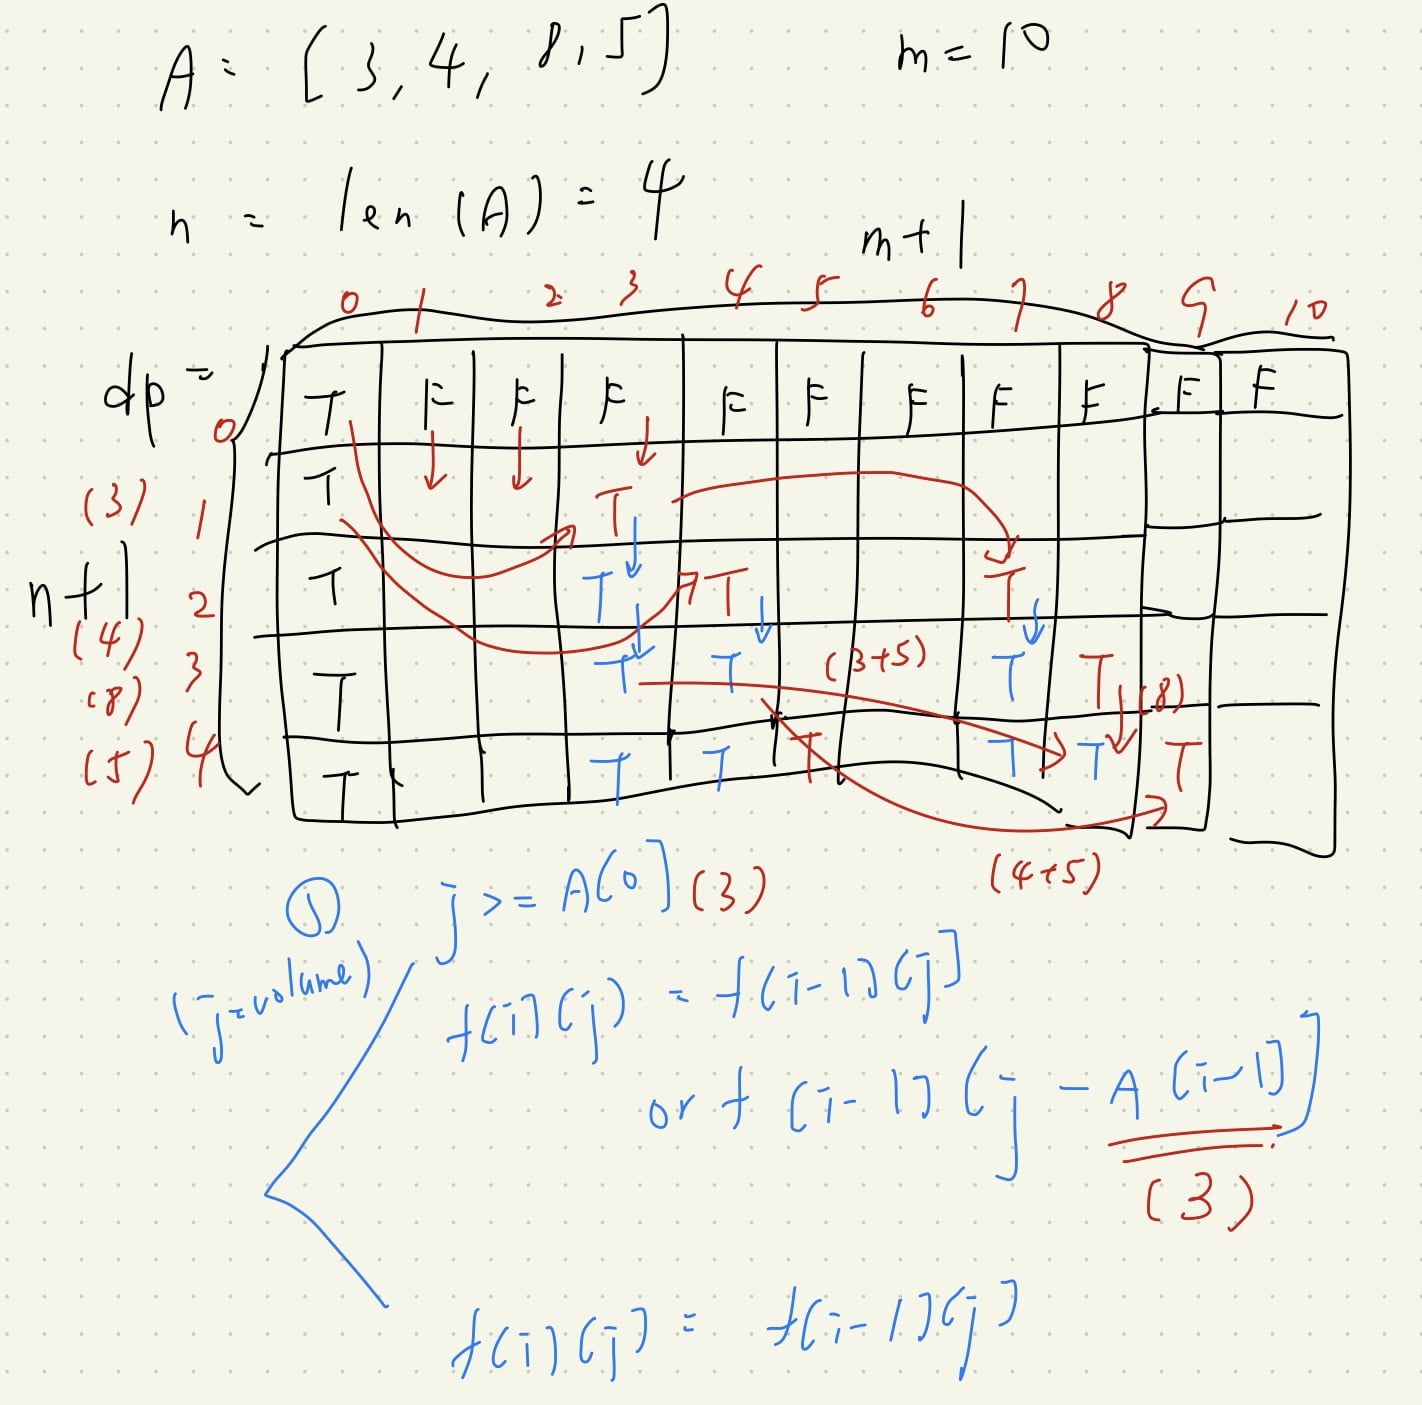 A = [3, 4, 8, 5] m = 10
n = len (A) = 4
m+1
0 1 2 3 4 5 6 7 8 9 10
dp =
0 T F F F F F F F F F F
(3) 1 T T
n+1
(4) 2 T T T T
(8) 3 T T T (3+5) T T (8)
(5) 4 T T T T T T T
(4+5)
① j >= A[0] (3)
(j=volume)
f[i][j] = f[i-1][j]
or f [i-1][j - A[i-1]]
(3)
f[i][j] = f[i-1][j]